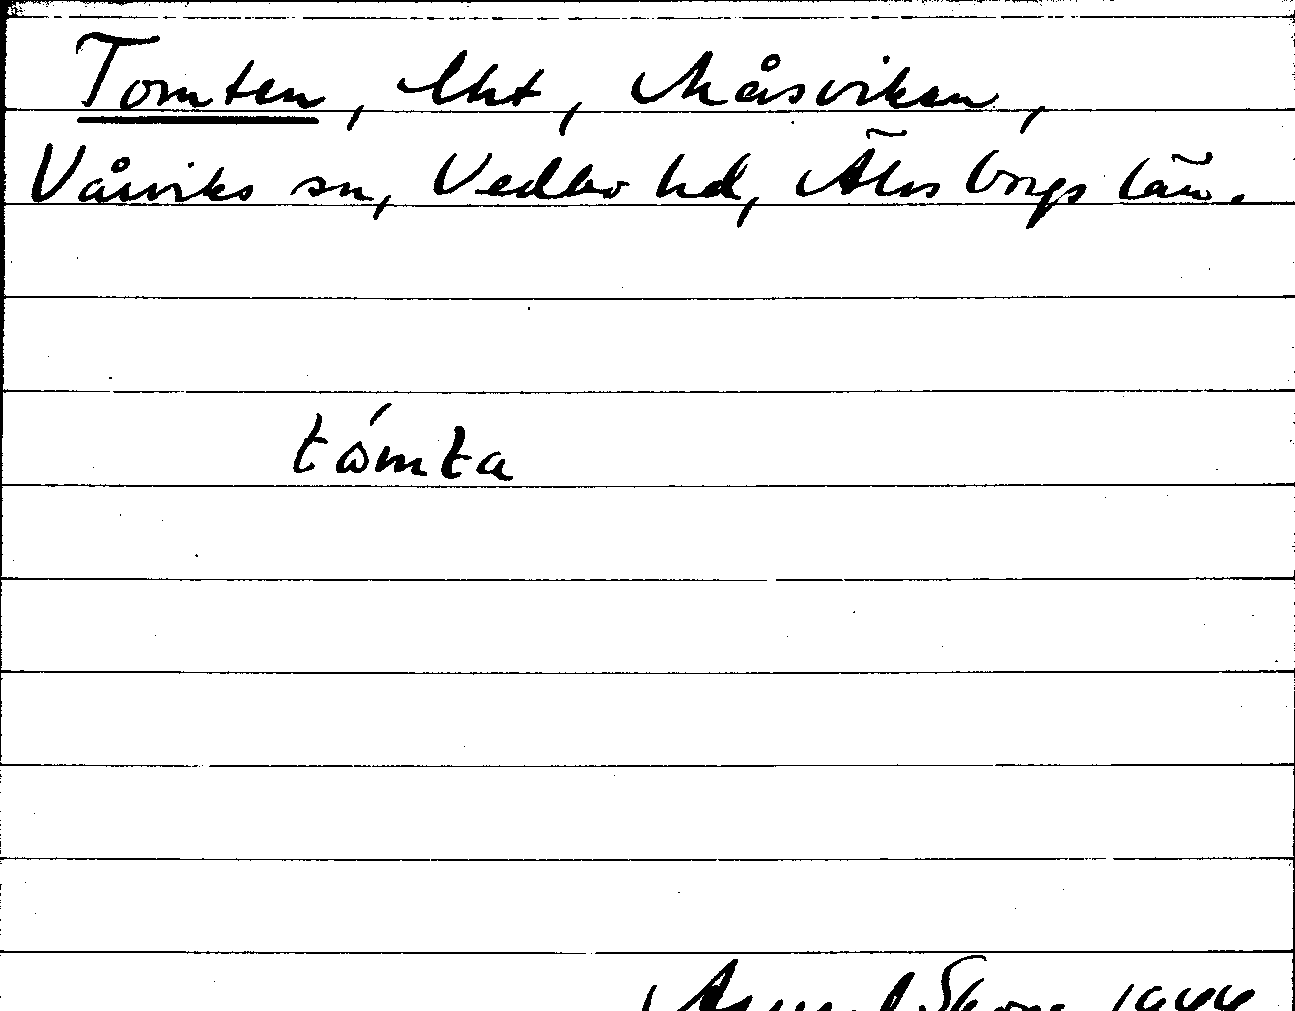 Tomten, lht, Måsviken,
Vårviks sn, Vedbo hd, Älvsborgs län.
tómta
1944